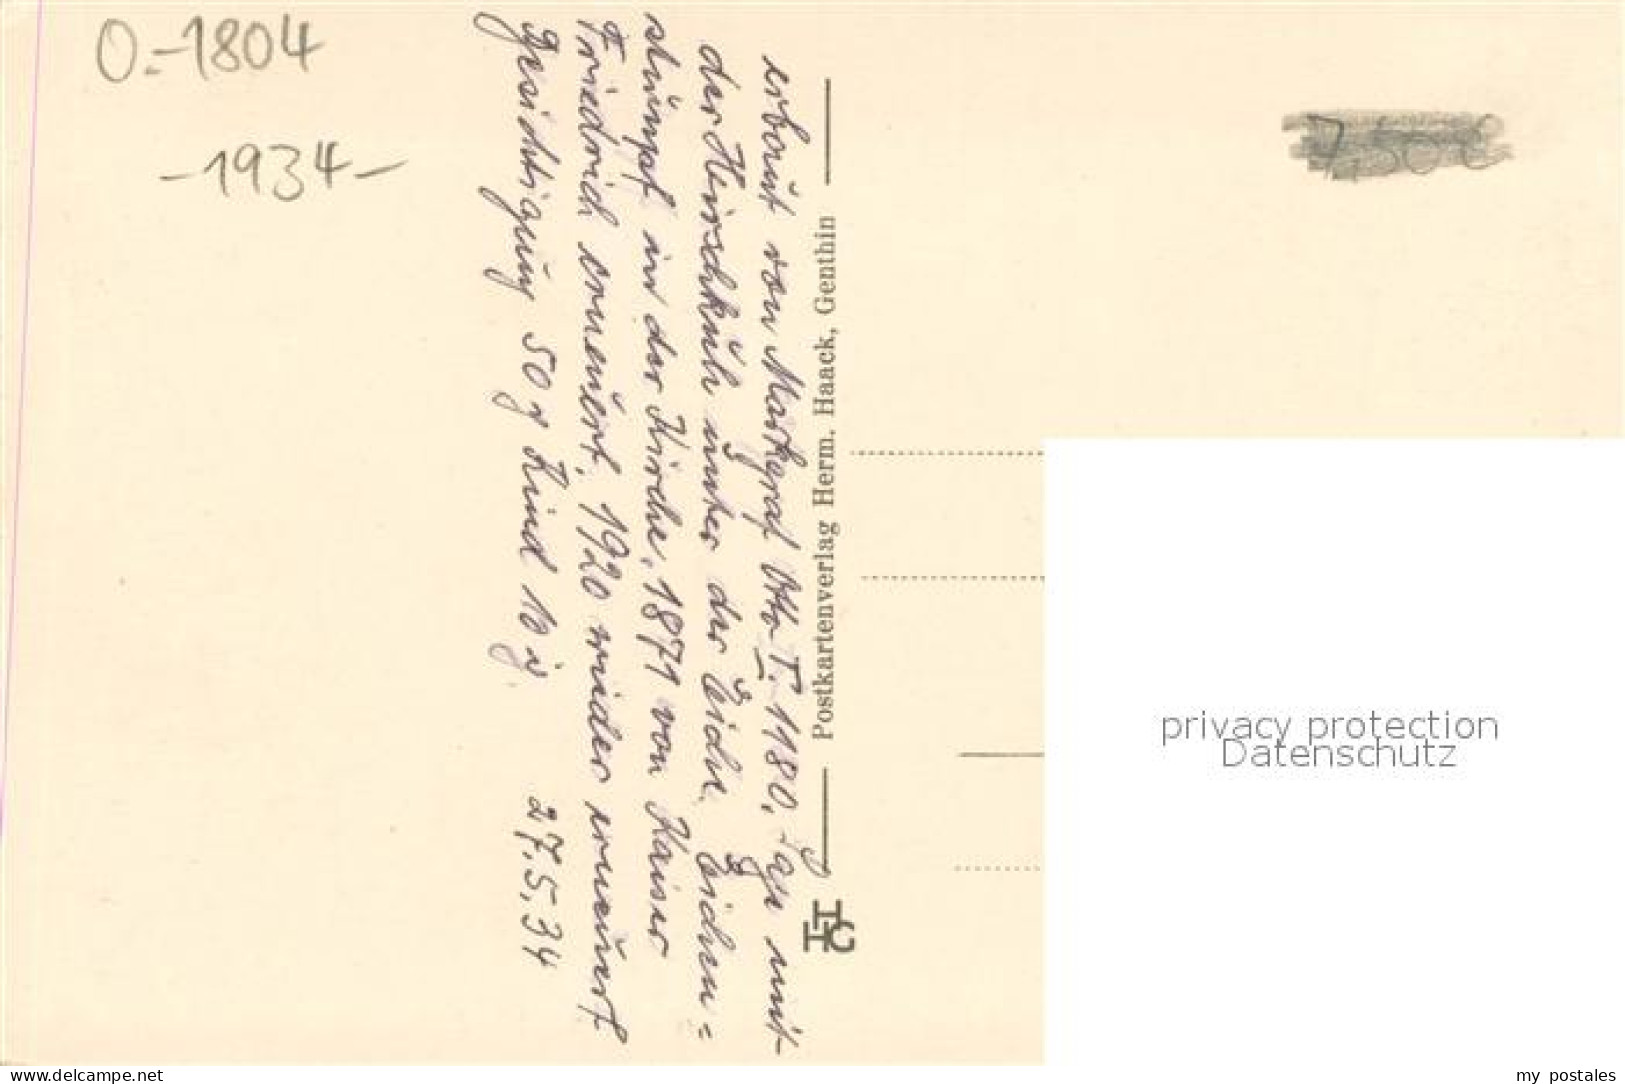 O.-1804
-1934-
erbaut von Markgraf Otto I. 1180, Sage mit
der Hirschkuh unter der Eiche. Eichen=
stumpf in der Kirche, 1871 von Kaiser
Friedrich erneuert, 1920 wieder erneuert
Besichtigung 50 ₰ Kind 10 ₰ 27.5.34
Postkartenverlag Herm. Haack, Genthin
HHG
privacy protection
Datenschutz
www.delcampe.net
my_postales